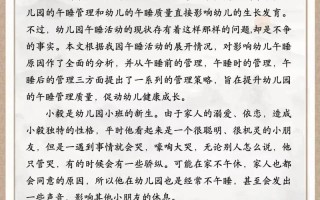 的午睡管理和幼儿的午睡质量直接影响幼儿的生长发育。
不过，幼儿园午睡活动的现状存有着这样那样的问题,却是不争
的事实。本文根据我园午睡活动的展开情况，对影响幼儿午睡
原因作了全面的分析，并从午睡前的管理，午睡时的管理，午
睡后的管理三方面提出了一系列的管理策略，旨在提升幼儿园
的午睡管理质量，促动幼儿健康成长。
小毅是幼儿园小班的新生。由于家人的溺爱、依恋，造成
小毅独特的性格，平时他看起来是一个很聪明、很机灵的小朋
友，但是一遇到事情就会哭，嚎啕大哭，无论别人怎么说，他
只管哭，有的时候会有一些骄纵。可能在家不午休，家人也都
会同意的原因，所以他在幼儿园也是经常不午睡，甚至会发出
一些声音，影响其他小朋友的休息。